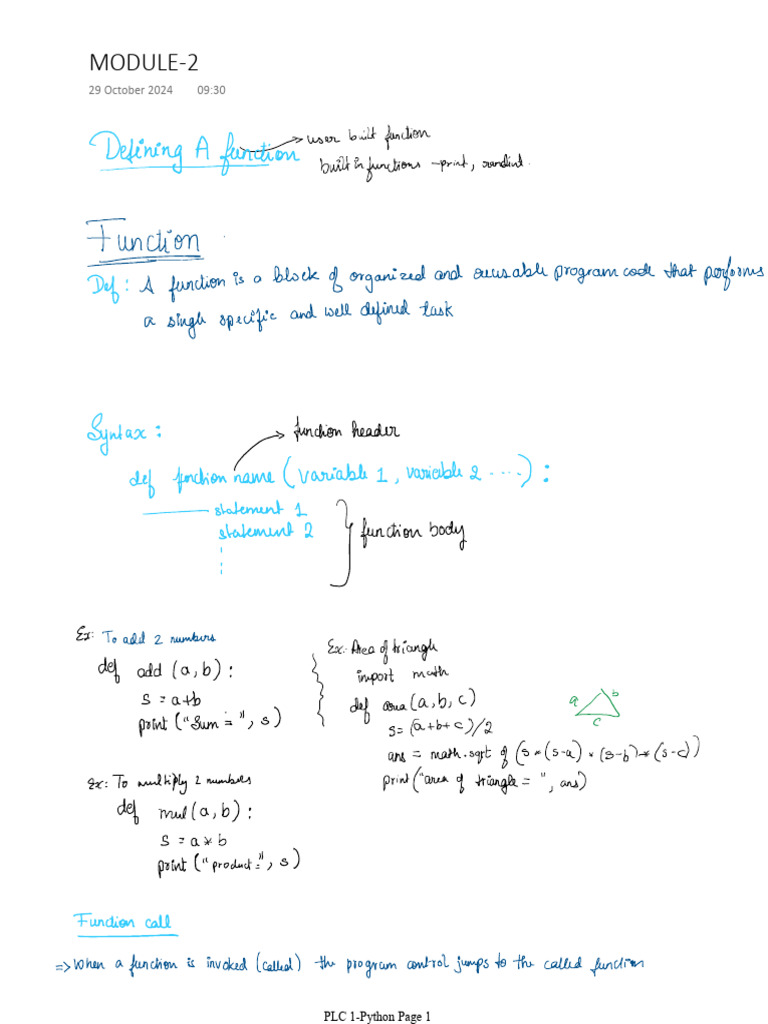 MODULE-2
29 October 2024 09:30
Defining A function → user built function
built in functions - print, randint.
Function
Def: A function is a block of organized and reusable program code that performs
a single specific and well defined task
Syntax:
function header
def function name (variable 1, variable 2 ....):
statement 1
statement 2
function body
Ex: To add 2 numbers
def add (a, b):
s = a+b
print ("Sum = ", s)
Ex: Area of triangle
import math
def area (a, b, c)
s = (a+b+c)/2
ans = math.sqrt of (s * (s-a) * (s-b) * (s-c))
print ("area of triangle = ", ans)
a b
c
Ex: To multiply 2 numbers
def mul (a, b):
s = a * b
print ("product=", s)
Function call
=> When a function is invoked (called) the program control jumps to the called function
PLC 1-Python Page 1